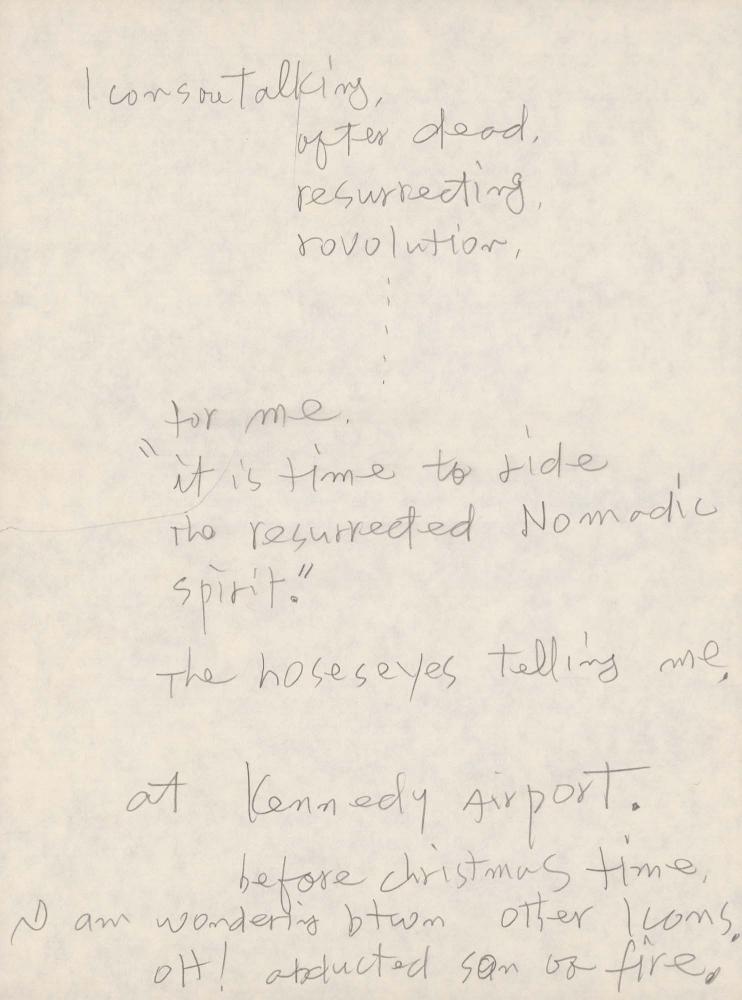 Icons are talking,
after dead,
resurrecting,
rovolution,
for me.
"it is time to ride
The resurrected Nomadic
spirit."
The hoseseyes telling me,
at Kennedy Airport.
before christmas time,
I am wonderig btwn other Icons,
oH! abducted son of fire.